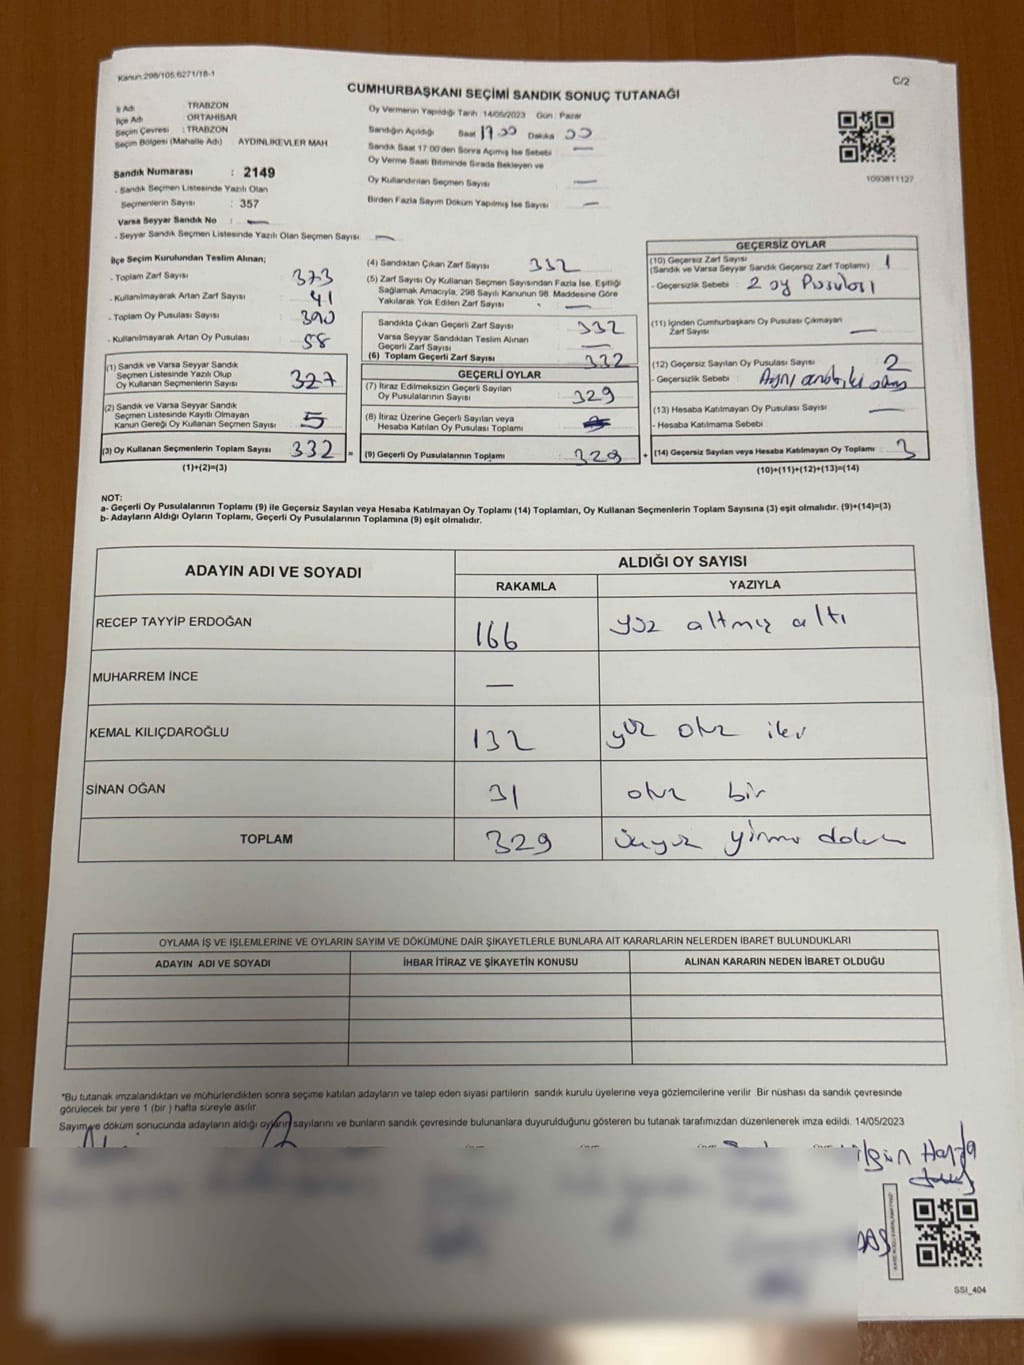 Kanun:298/105,6271/18-1
C/2
CUMHURBAŞKANI SEÇİMİ SANDIK SONUÇ TUTANAĞI
İl Adı TRABZON
İlçe Adı ORTAHİSAR
Seçim Çevresi : TRABZON
Seçim Bölgesi (Mahalle Adı) : AYDINLIKEVLER MAH
Sandık Numarası : 2149
- Sandık Seçmen Listesinde Yazılı Olan
Seçmenlerin Sayısı : 357
Varsa Seyyar Sandık No : —
- Seyyar Sandık Seçmen Listesinde Yazılı Olan Seçmen Sayısı : —
Oy Vermenin Yapıldığı Tarih 14/05/2023 Gün : Pazar
Sandığın Açıldığı Saat 17 00 Dakika 00
Sandık Saat 17:00'den Sonra Açılmış İse Sebebi —
Oy Verme Saati Bitiminde Sırada Bekleyen ve
Oy Kullandırılan Seçmen Sayısı —
Birden Fazla Sayım Döküm Yapılmış İse Sayısı —
1093811127
İlçe Seçim Kurulundan Teslim Alınan;
- Toplam Zarf Sayısı 373
- Kullanılmayarak Artan Zarf Sayısı 41
- Toplam Oy Pusulası Sayısı 390
- Kullanılmayarak Artan Oy Pusulası 58
(1) Sandık ve Varsa Seyyar Sandık
Seçmen Listesinde Yazılı Olup
Oy Kullanan Seçmenlerin Sayısı 327
(2) Sandık ve Varsa Seyyar Sandık
Seçmen Listesinde Kayıtlı Olmayan
Kanun Gereği Oy Kullanan Seçmen Sayısı 5
(3) Oy Kullanan Seçmenlerin Toplam Sayısı 332 =
(1)+(2)=(3)
(4) Sandıktan Çıkan Zarf Sayısı 332
(5) Zarf Sayısı Oy Kullanan Seçmen Sayısından Fazla İse, Eşitliği
Sağlamak Amacıyla, 298 Sayılı Kanunun 98. Maddesine Göre
Yakılarak Yok Edilen Zarf Sayısı : —
Sandıkta Çıkan Geçerli Zarf Sayısı 332
Varsa Seyyar Sandıktan Teslim Alınan
Geçerli Zarf Sayısı —
(6) Toplam Geçerli Zarf Sayısı 332
GEÇERLİ OYLAR
(7) İtiraz Edilmeksizin Geçerli Sayılan
Oy Pusulalarının Sayısı 329
(8) İtiraz Üzerine Geçerli Sayılan veya
Hesaba Katılan Oy Pusulası Toplamı
(9) Geçerli Oy Pusulalarının Toplamı 329 +
GEÇERSİZ OYLAR
(10) Geçersiz Zarf Sayısı 1
(Sandık ve Varsa Seyyar Sandık Geçersiz Zarf Toplamı)
- Geçersizlik Sebebi : 2 oy Pusulası
(11) İçinden Cumhurbaşkanı Oy Pusulası Çıkmayan
Zarf Sayısı —
(12) Geçersiz Sayılan Oy Pusulası Sayısı 2
- Geçersizlik Sebebi :
(13) Hesaba Katılmayan Oy Pusulası Sayısı —
- Hesaba Katılmama Sebebi
(14) Geçersiz Sayılan veya Hesaba Katılmayan Oy Toplamı 3
(10)+(11)+(12)+(13)=(14)
NOT:
a- Geçerli Oy Pusulalarının Toplamı (9) ile Geçersiz Sayılan veya Hesaba Katılmayan Oy Toplamı (14) Toplamları, Oy Kullanan Seçmenlerin Toplam Sayısına (3) eşit olmalıdır. (9)+(14)=(3)
b- Adayların Aldığı Oyların Toplamı, Geçerli Oy Pusulalarının Toplamına (9) eşit olmalıdır.
ADAYIN ADI VE SOYADI
ALDIĞI OY SAYISI
RAKAMLA YAZIYLA
RECEP TAYYİP ERDOĞAN 166 yüz altmış altı
MUHARREM İNCE —
KEMAL KILIÇDAROĞLU 132 yüz otuz iki
SİNAN OĞAN 31 otuz bir
TOPLAM 329 üçyüz yirmi dokuz
OYLAMA İŞ VE İŞLEMLERİNE VE OYLARIN SAYIM VE DÖKÜMÜNE DAİR ŞİKAYETLERLE BUNLARA AİT KARARLARIN NELERDEN İBARET BULUNDUKLARI
ADAYIN ADI VE SOYADI İHBAR İTİRAZ VE ŞİKAYETİN KONUSU ALINAN KARARIN NEDEN İBARET OLDUĞU
*Bu tutanak imzalandıktan ve mühürlendikten sonra seçime katılan adayların ve talep eden siyasi partilerin sandık kurulu üyelerine veya gözlemcilerine verilir. Bir nüshası da sandık çevresinde
görülecek bir yere 1 (bir) hafta süreyle asılır.
Sayım ve döküm sonucunda adayların aldığı oyların sayılarını ve bunların sandık çevresinde bulunanlara duyurulduğunu gösteren bu tutanak tarafımızdan düzenlenerek imza edildi. 14/05/2023
SSI_404